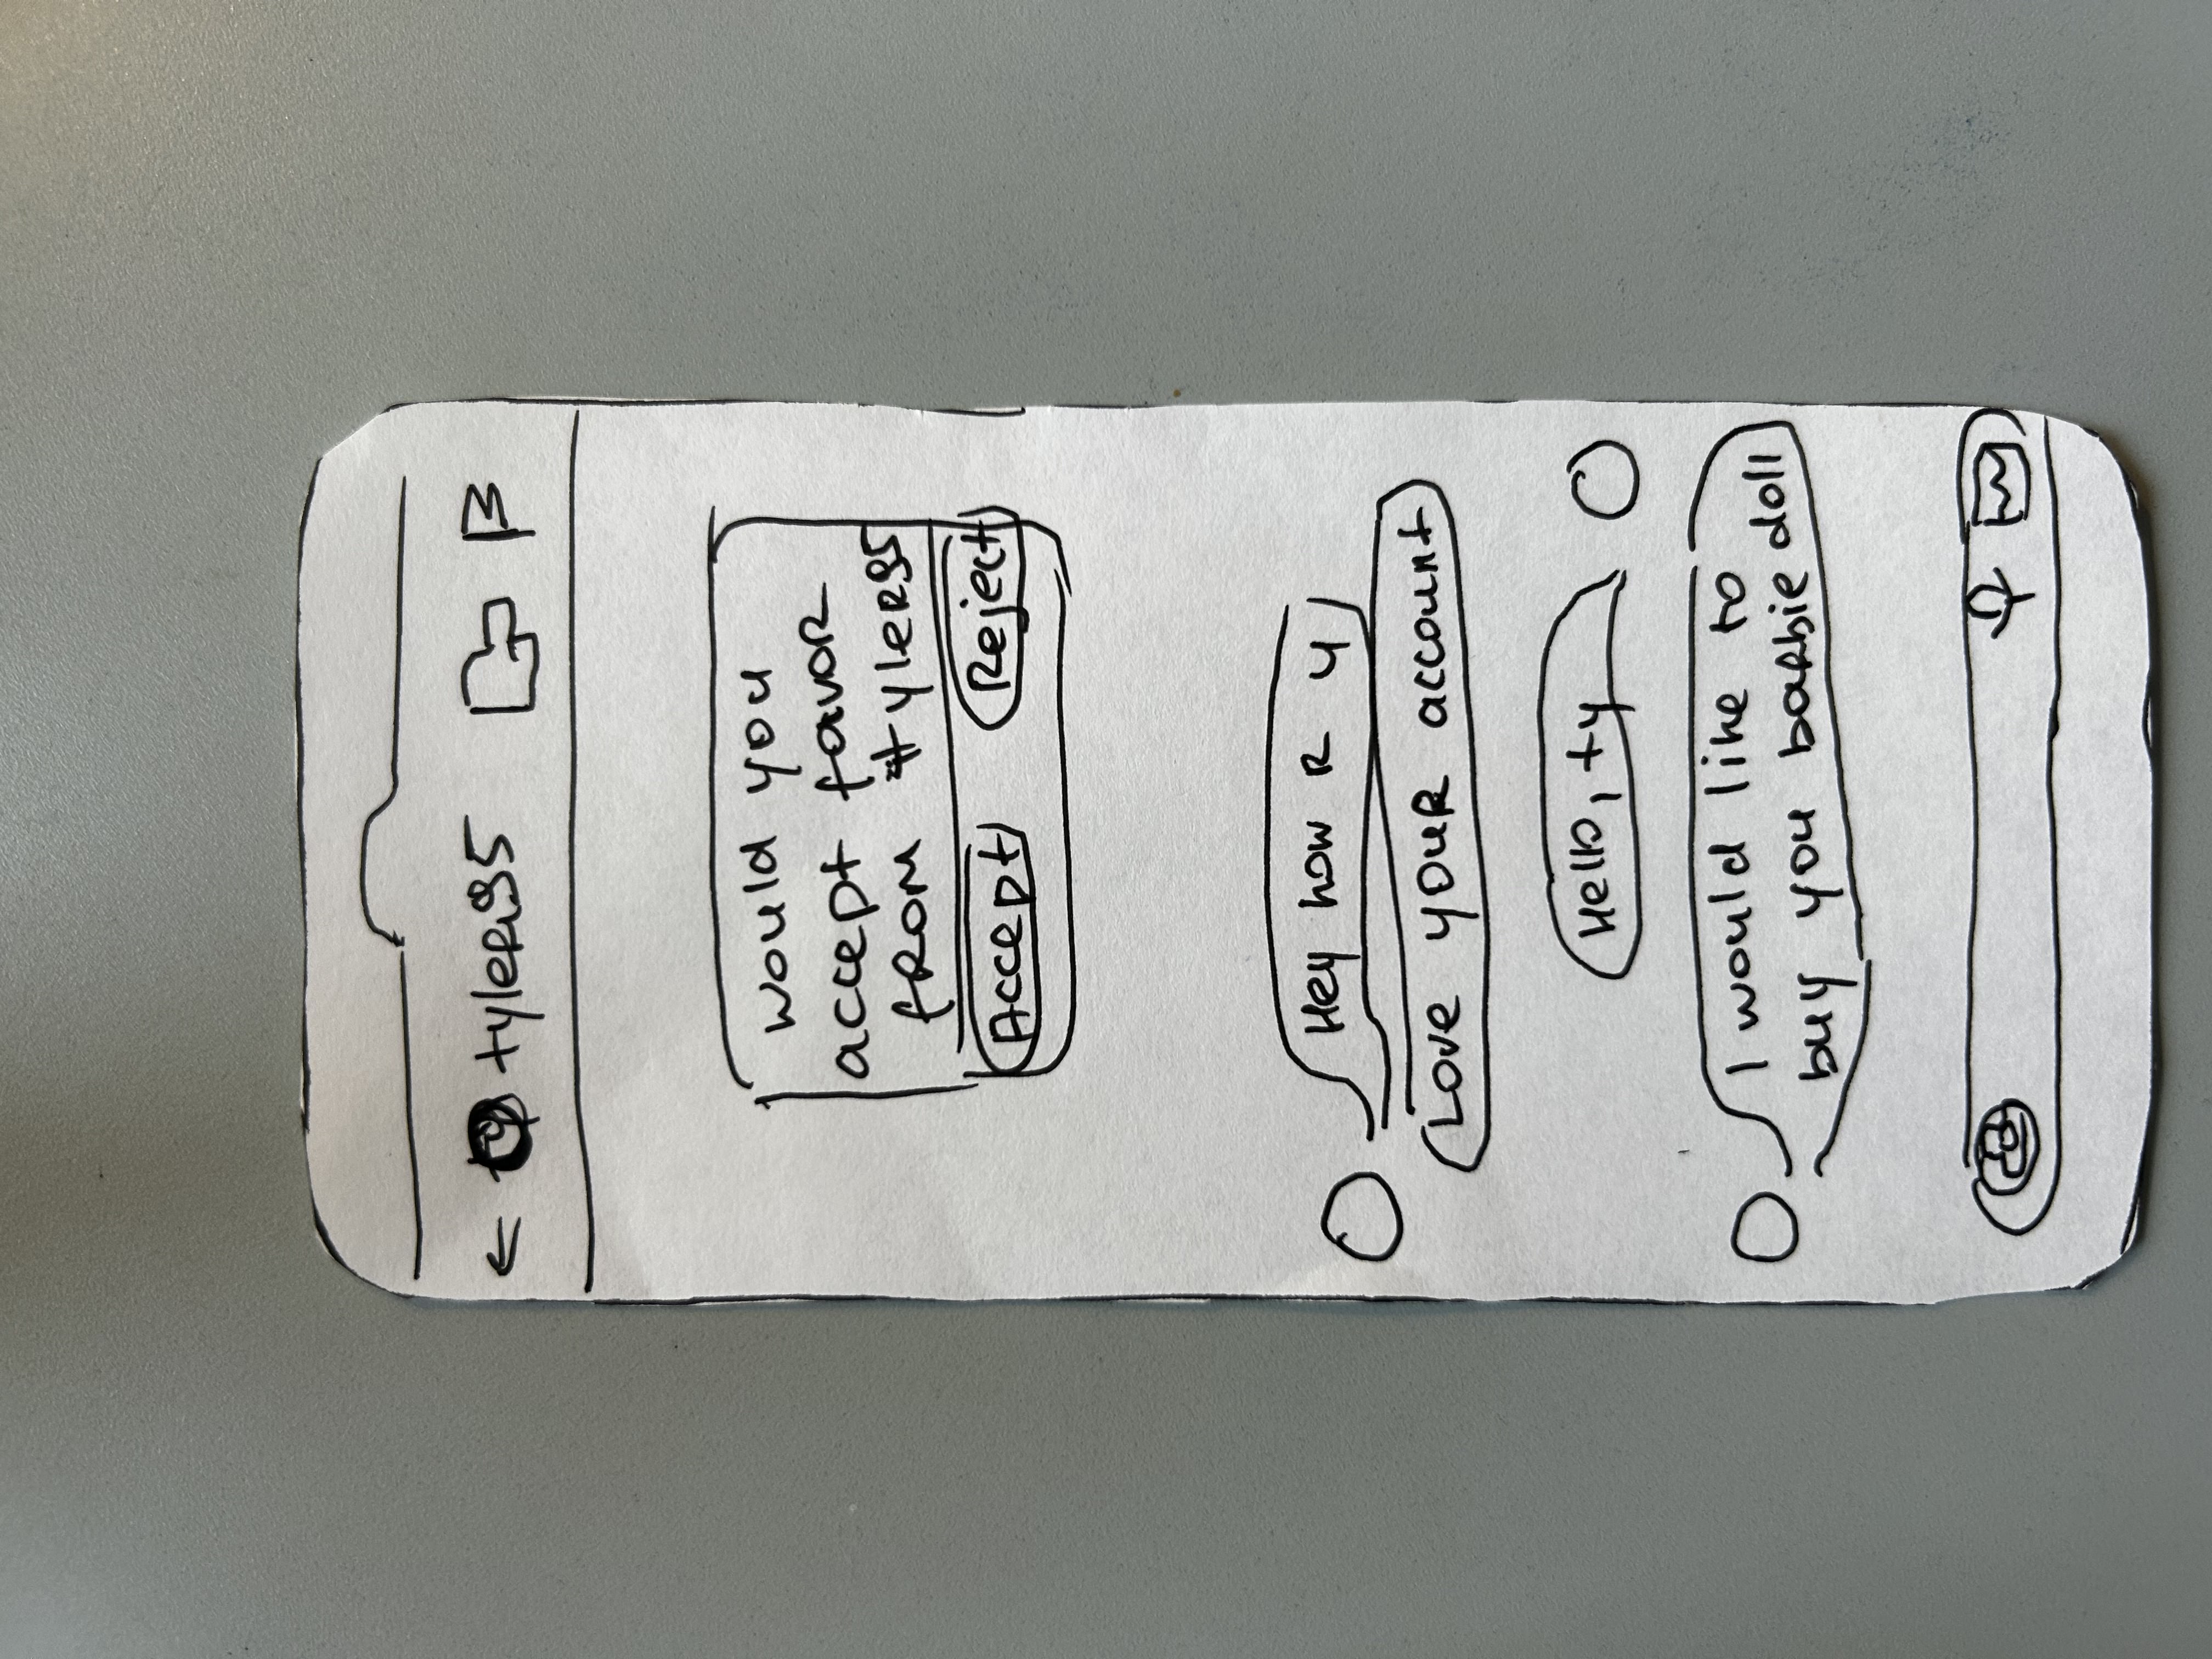 tyler95
would you
accept favor
from tyler95
Accept Reject
Hey how R u
Love your account
Hello, ty
I would like to
buy you barbie doll